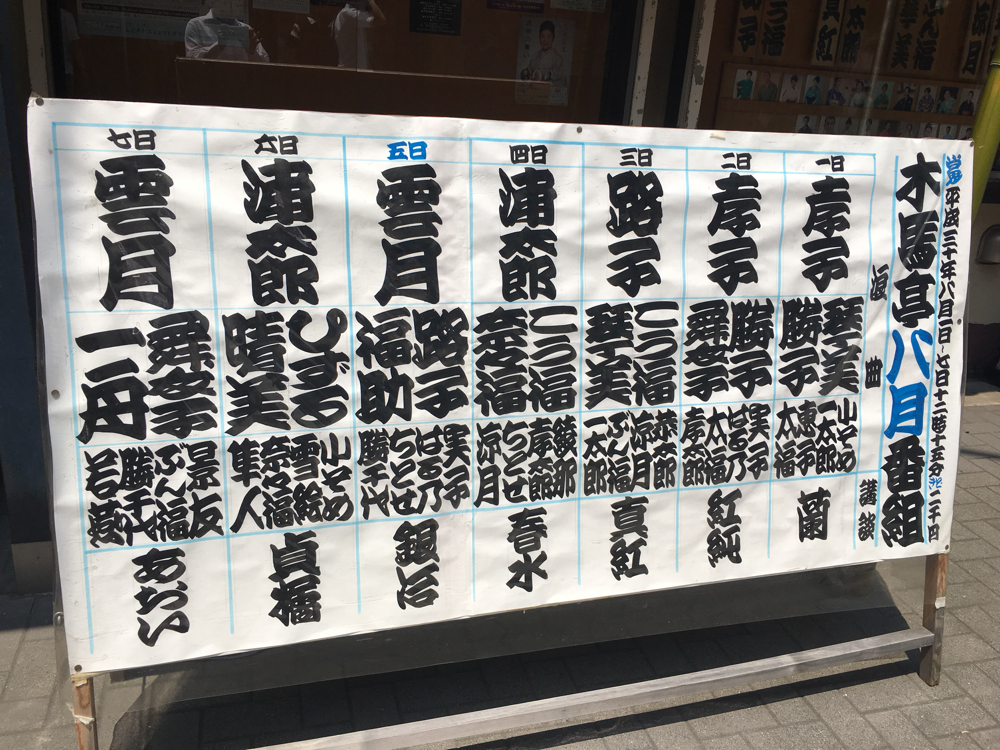 平成三十年八月一日〜七日十二時十五分
木馬亭八月番組
浪曲
講談
一日
孝子
琴美
勝子
山そめ
一太郎
恵子
太福
蘭
二日
孝子
勝子
舜子
実子
はる乃
太福
孝太郎
紅純
三日
路子
こう福
琴美
恭太郎
涼月
ぶん福
一太郎
真紅
四日
浦太郎
こう福
奈々福
綾那
孝太郎
ちとせ
涼月
春水
五日
雲月
路子
福助
実子
はる乃
ちとせ
勝千代
銀冶
六日
浦太郎
ぴずる
晴美
山そめ
雪絵
奈々福
隼人
貞橘
七日
雲月
一舟
景友
ぶん福
勝千代
若葉
あおい